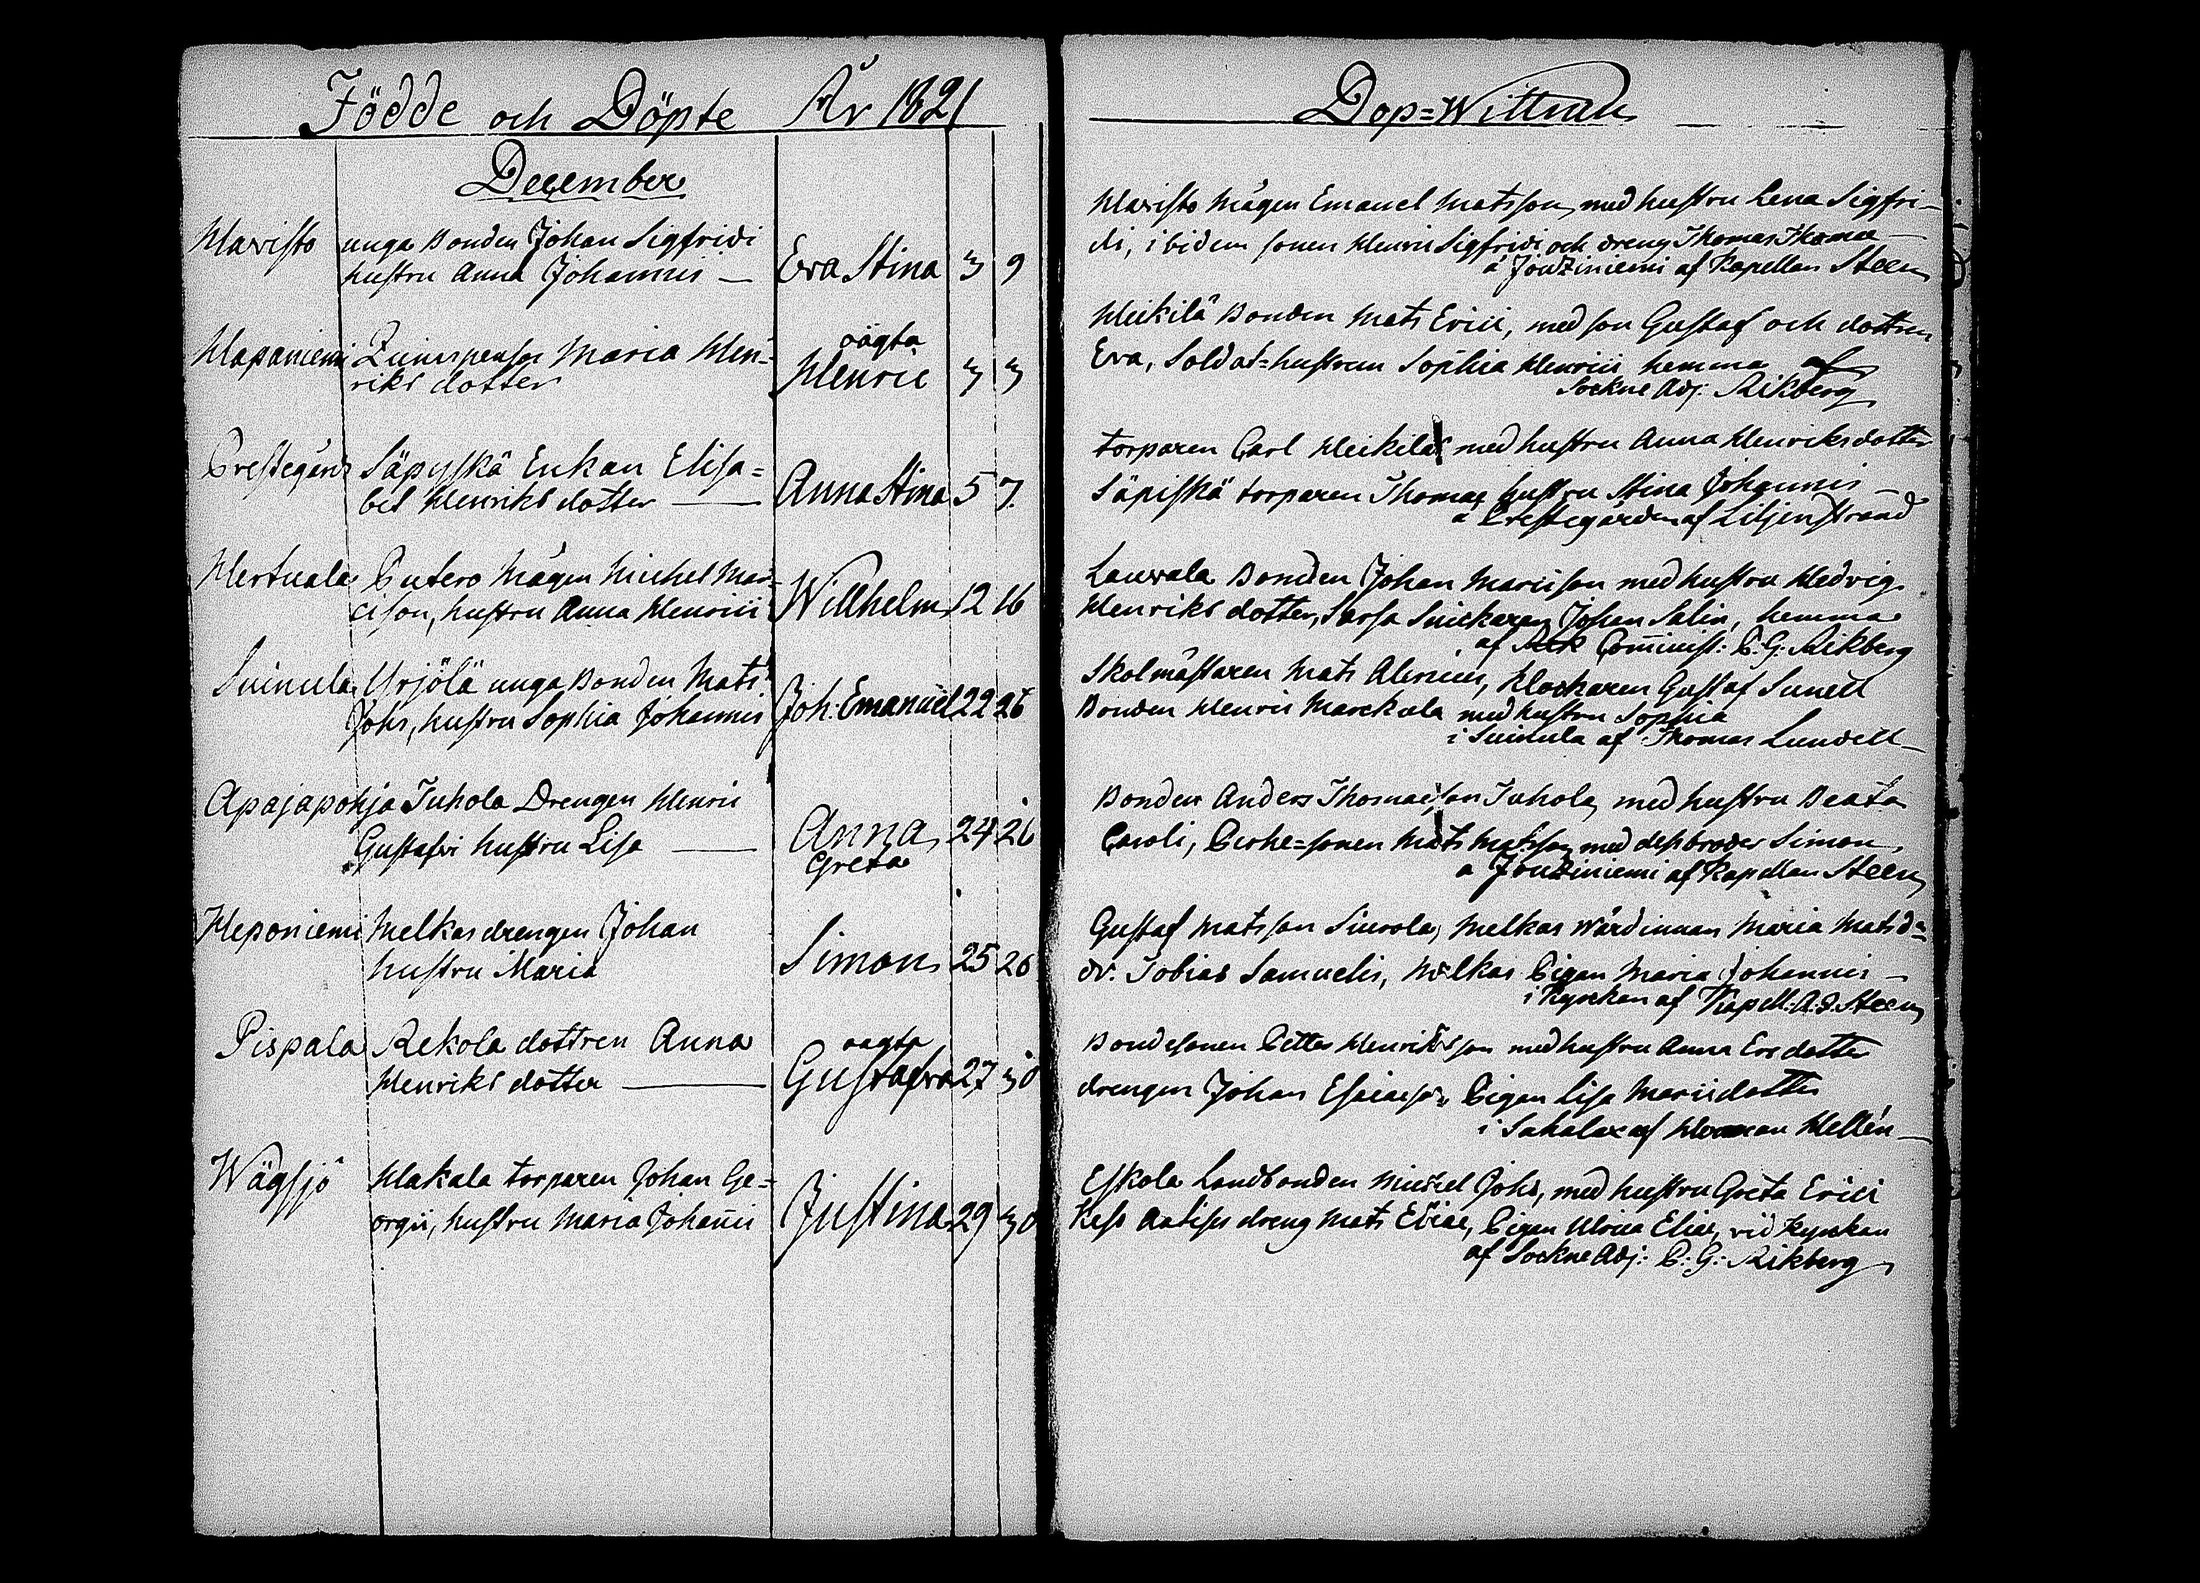 Födde och Döpte År 1821
December
Haxisto unga Bonden Johan Sigfridi
hustru Anna Johannis — Eva Stina 3 9
oägta
Hapaniemi Maria Hen-
riks dotter Henric 3 3
Prestegård Säpyskä Enkan Elisa=
bet Henriks dotter — Anna Stina 5 7.
Hertuala Putero Mågen Michel Mar-
cison, hustru Anna Henrici Willhelm 12 16
Suinula Yrjölä unga Bonden Mats
Johs, hustru Sophia Johannis Joh: Emanuel 22 26
Apajapohja Juhola Drengen Henric
Gustafvi hustru Lisa — Anna 24 26
Greta
Heponiemi Melkas drengen Johan
hustru Maria Simon 25 26
Pispala Rekola dottren Anna oägta
Henriks dotter — Gustafva 27 30
Wägsjö Hakala torparen Johan Ge=
orgii, hustru Maria Johañis Justina 29 30
Dop=Wittnen
Haxisto Mågen Emanuel Matsson, med hustru Lena Sigfri-
di, ibidem sonen Henric Sigfridi och dreng Thomas Thomae —
á Jouziniemi af Kapellan Steen
Heikilä Bonden Mats Erici, med son Gustaf och dottren
Eva, Soldat=hustrun Sophia Henrici hemma af
Sockne Adj: Rikberg
torparen Carl Heikilä med hustru Anna Henriksdotter
Säpiskä torparen Thomas hustru Stina Johannis
á Prestegården af Liljenstrand
Lauxala Bonden Johan Marcison med hustru Hedvig
Henriks dotter, Sarsa Snickaren Johan Salin, hemma
af Com̃inist: C. G. Rikberg
Skolmästaren Mats Alenius, klockaren Gustaf Sunell
Bonden Henric Marckola med hustru Sophia
i Suinula af Thomas Lundell —
Bonden Anders Thomaeson Juhola, med hustru Beata
Caroli, Perhe=sonen Mats Matsson med dess broder Simon,
a Jouziniemi af Kapellan Steen
Gustaf Matsson Siurola, Melkas Wärdinnan Maria Matsd=
dr. Tobias Samuelis, Melkas Pigan Maria Johannis —
i Kyrckan af Kapell. A. J. Steen
Bondesonen Petter Henriksson med hustru Anna Ersdotter
drengen Johan Esaiasson Pigan Lisa Marcisdotter
i Sahalax af Herman Hellén —
Eskola Landbonden Michel Johs, med hustru Greta Erici
Kess Antiss dreng Mats Eliae, Pigan Ulrica Eliae, vid kyrckan
af Sockne Adj: C: G: Rikberg